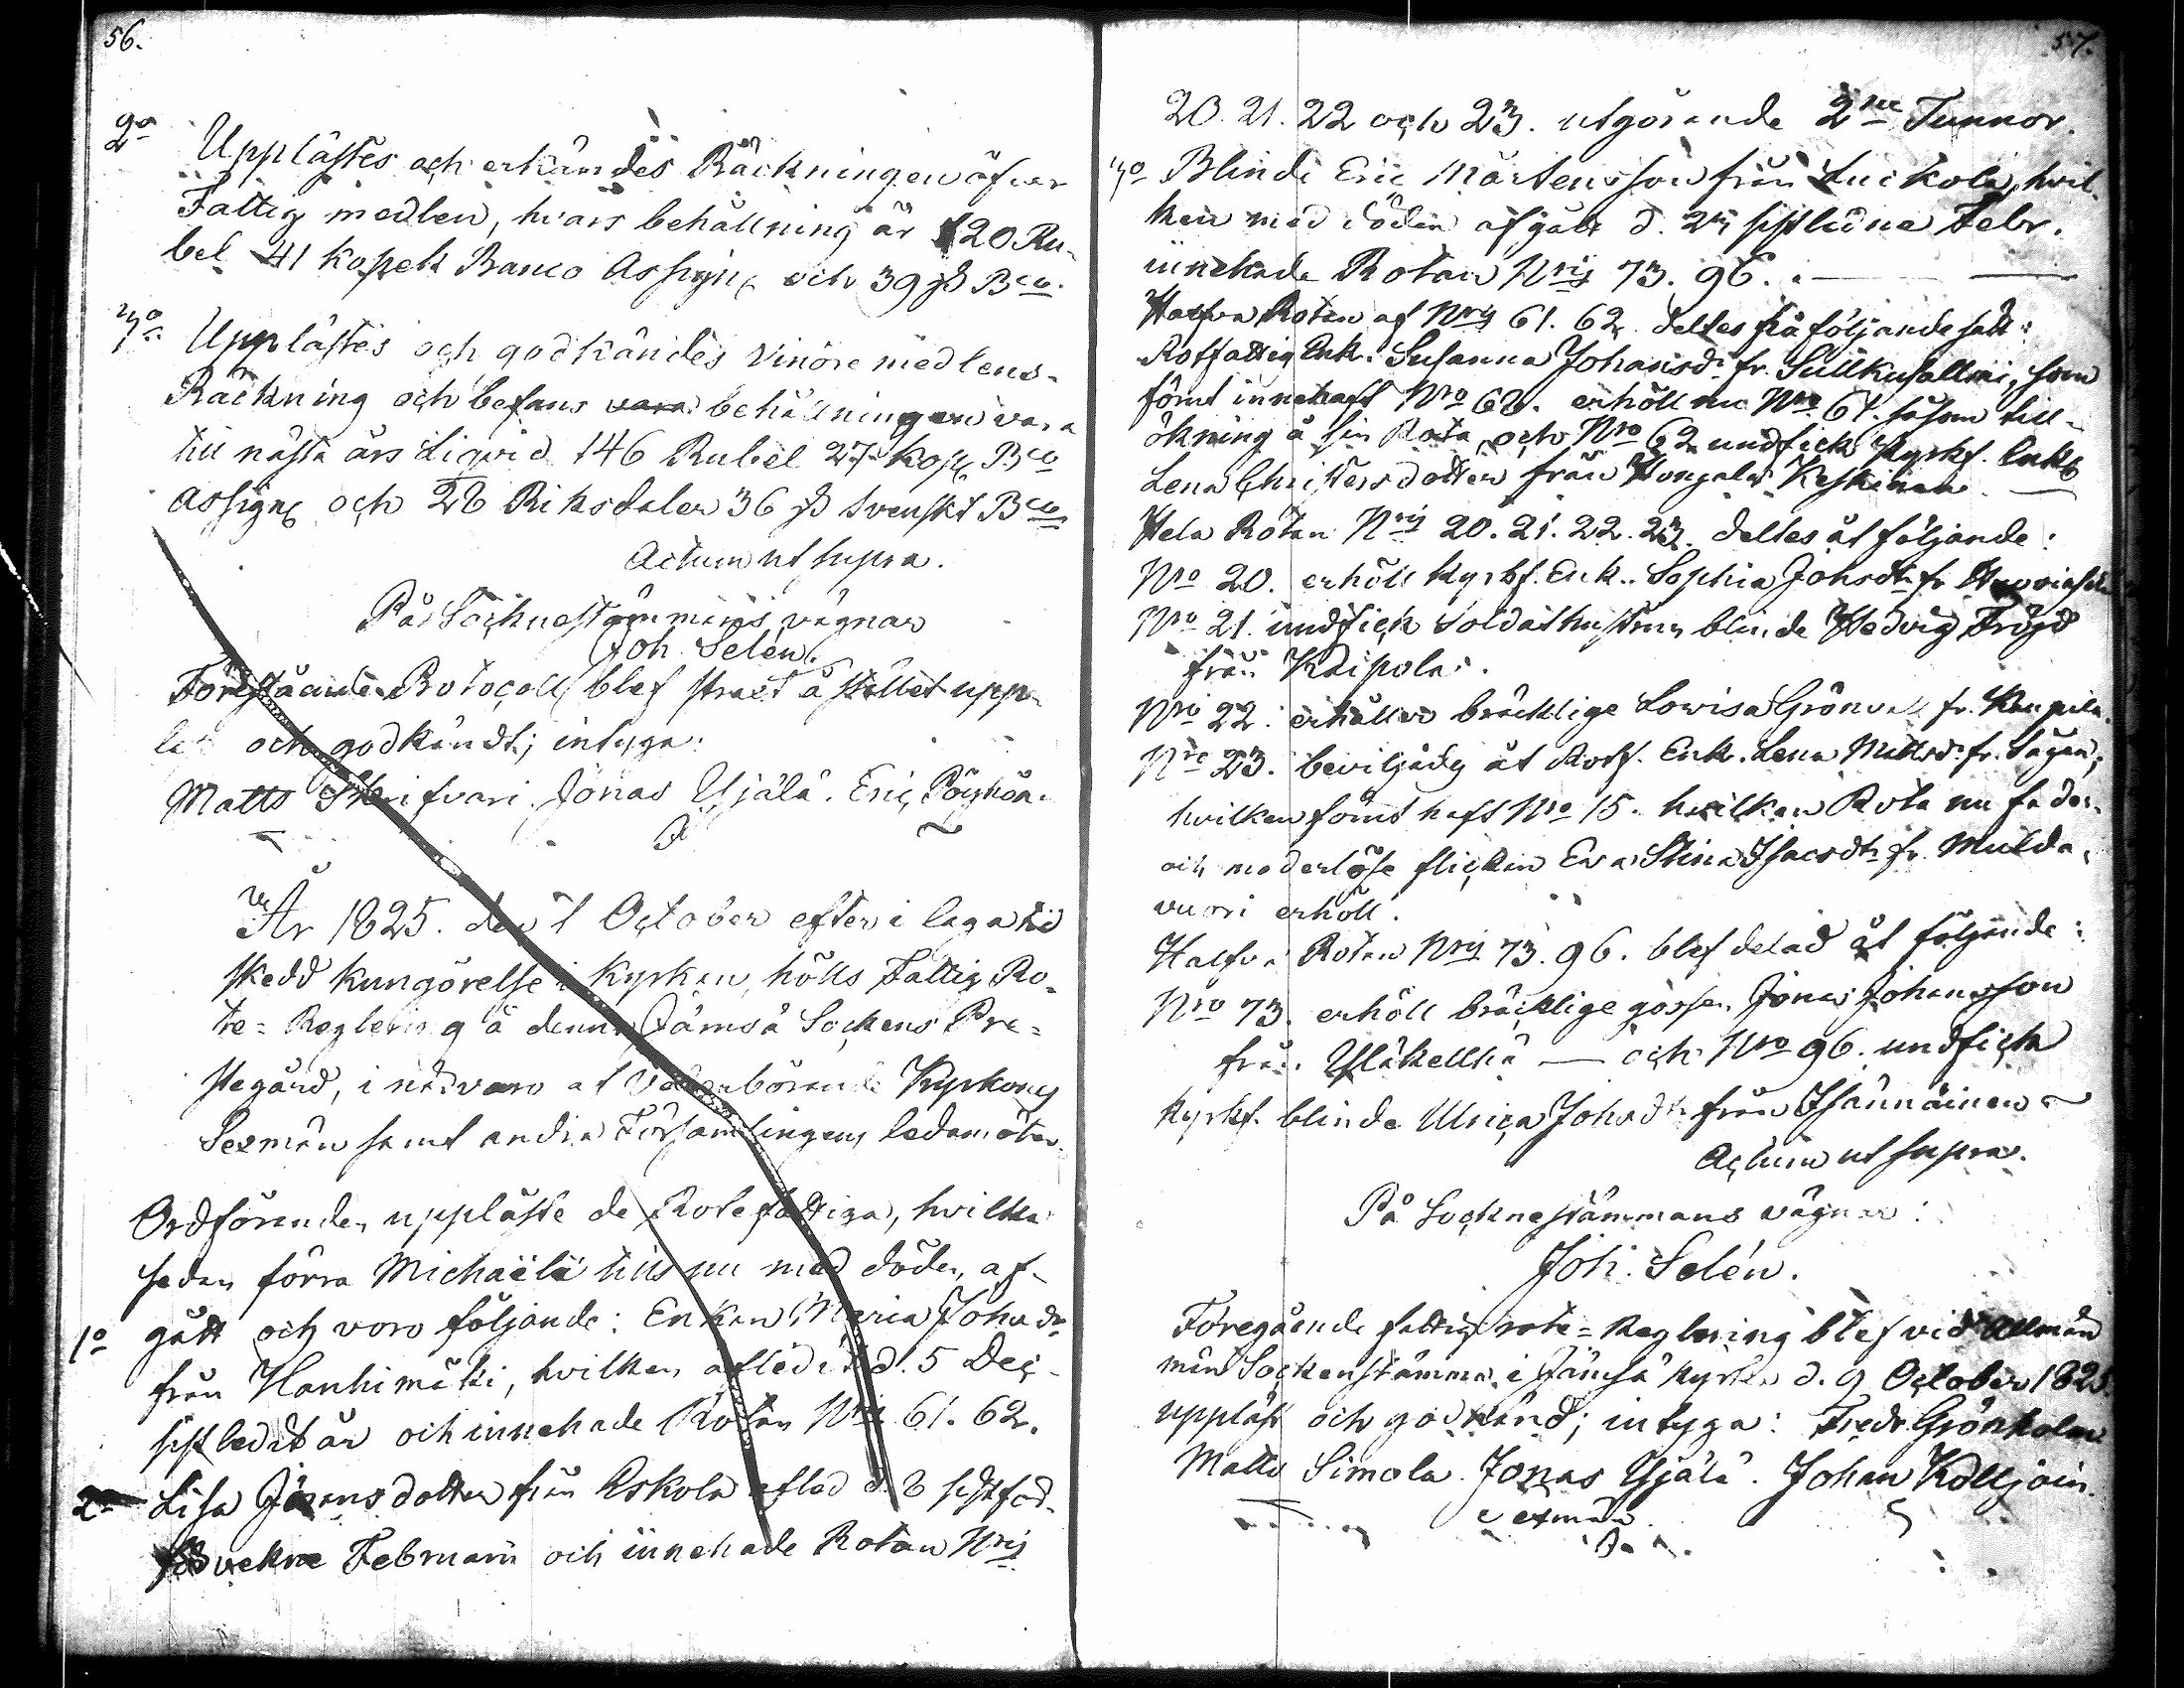 56.
2o Upplästes och erkändes Räckningen öfver
Fattig medlen, hvars behållning är 120 Ru-
bel 41 kopek Banco Assign och 39 ß Bco.
3o Upplästes och godkändes Vinöre medlens
Räckning och befans vara behållningen vara
till nästa års Liqvid 146 Rubel 27 kop Bco
Assign och 26 Riksdaler 36 ß Svenskt Bco
Actum ut supra.
På Socknestämmans vägnar
Joh. Selén.
Förestående Protocoll blef strast å stället upp-
läst och godkändt; intyga:
Matts Jonas Ujälä. Eric Pöyhön.
År 1825. den 1 October efter i laga tid
skedd kungörelse i Kyrkan, hölls Fattig Ro-
te-Reglering å denna Jämsä Sockens Pre-
stegård, i närvaro af vederbörande Kyrkones
Sexmän samt andra Församlingens ledamöter.
Ordföranden uppläste de Rotefattiga, hvilka
sedan förra Michaëli tills nu med döden af-
1o gått och voro följande: Enkan Maria Johsdr
från Hanhimäki, hvilken afled d. 5 Dec.
sistledit år och innehade Rotan Nris 61. 62.
2o Lisa Göransdotter från Eskola afled d. 8
Februarii och innehade Rotan Nris
57.
20. 21. 22 och 23. utgörande 2ne Tunnor.
3o Blinde Eric Mårtensson från Luckola, hvil-
ken med döden afgått d. 23 sistledne Febr.
innehade Rotan Nris 73. 96.
Halfva Rotan af Nris 61. 62. deltes på följande sätt:
Rotfattig Enk. Susanna Johansdr fr. Sullkusalmi, som
förut innehaft Nro 60. erhöll nu Nro 61. såsom till-
ökning å sin Rota, och Nro 62 undfick Kyrkf. Enk
Lena Christersdotter från Keskinen
Hela Rotan Nris 20. 21. 22. 23. deltes åt följande:
Nro 20. erhöll Kyrkf. Enk. Sophia Johsdr fr.
Nro 21. undfick Soldathustrun blinde Hedvig Fröjd
från Kaipola.
Nro 22. erhåller bräcklige Lovisa Grönvall fr. Kaupila.
Nro 23. beviljades åt Rotf. Enk. Lena Mattsdr fr. Sågen,
hvilken förut haft Nro 15. hvilken Rota nu fader-
och moderlöse flickan Eva Stina Isacsdr fr. Mulda-
vuori erhöll.
Halfva Rotan Nris 73. 96. blef delad åt följande:
Nro 73. erhöll bräcklige gossen Jonas Johansson
från Yläkellhä — och Nro 96. undfick
Kyrkf. blinde Ulrica Johsdr från Isännäinen
Actum ut supra.
På Socknestämmans vägnar:
Joh. Selén.
Föregående fattig rote-Reglering blef vid Allmän
Sockenstämma i Jämsä kyrka d. 9 October 1825.
uppläst och godkänd; intyga: Fredr. Grönholm
Matts Simola. Jonas Ujälä. Johan
Sexmän